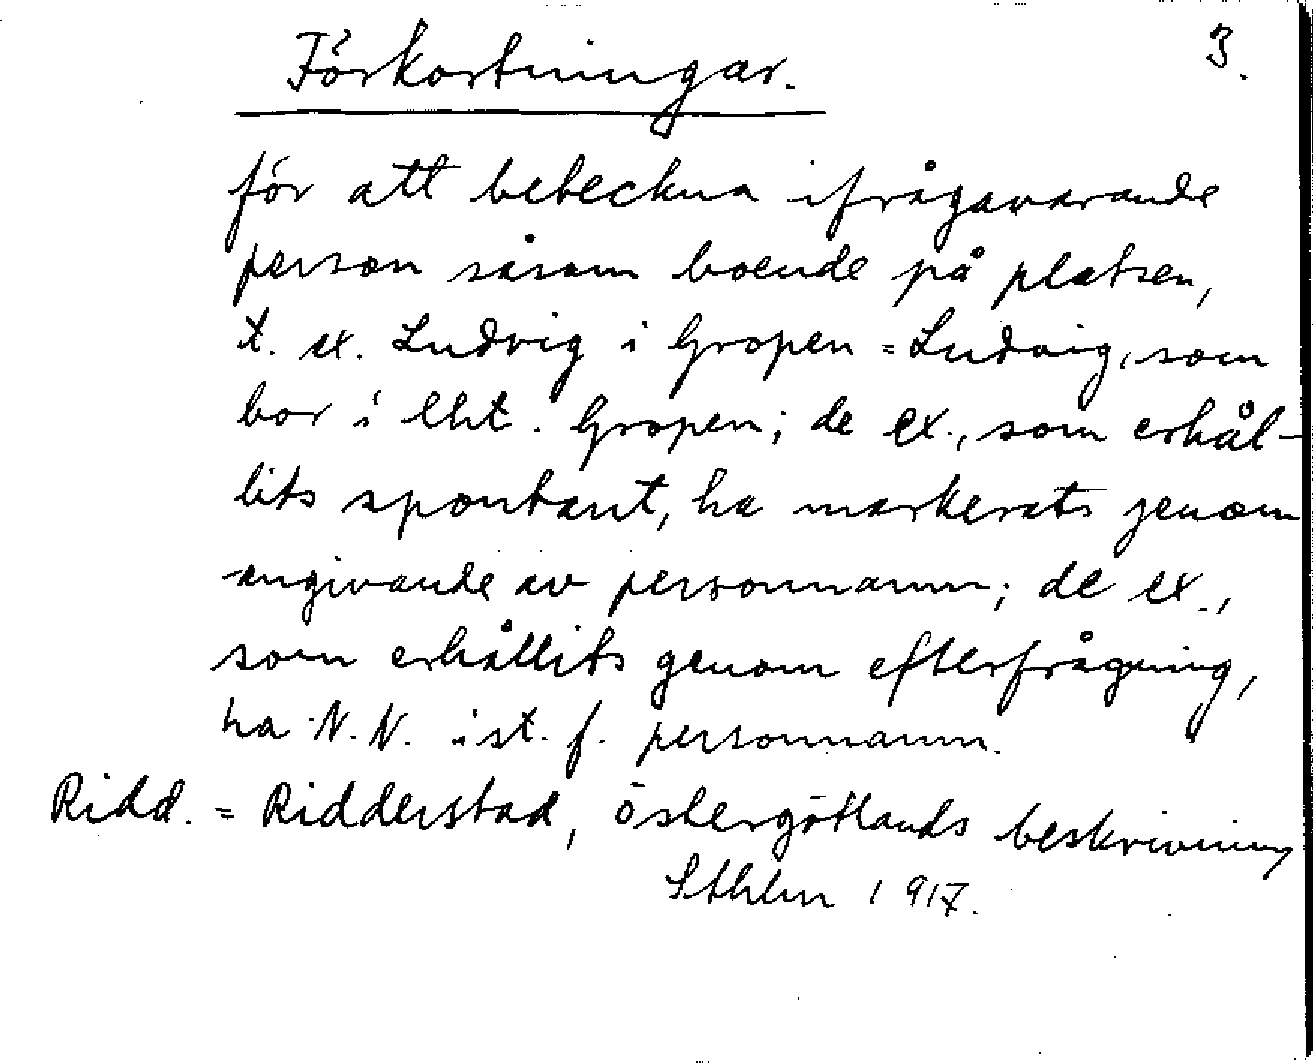 Förkortningar.
3.
för att beteckna ifrågavarande
person såsom boende på platsen,
t. ex. Ludvig i Gropen = Ludvig, som
bor i lht. Gropen; de ex., som erhål-
lits spontant, ha markerats genom
angivande av personnamn; de ex.,
som erhållits genom efterfrågning,
ha N.N. i st. f. personnamn.
Ridd. = Ridderstad, Östergötlands beskrivning
Sthlm 1917.